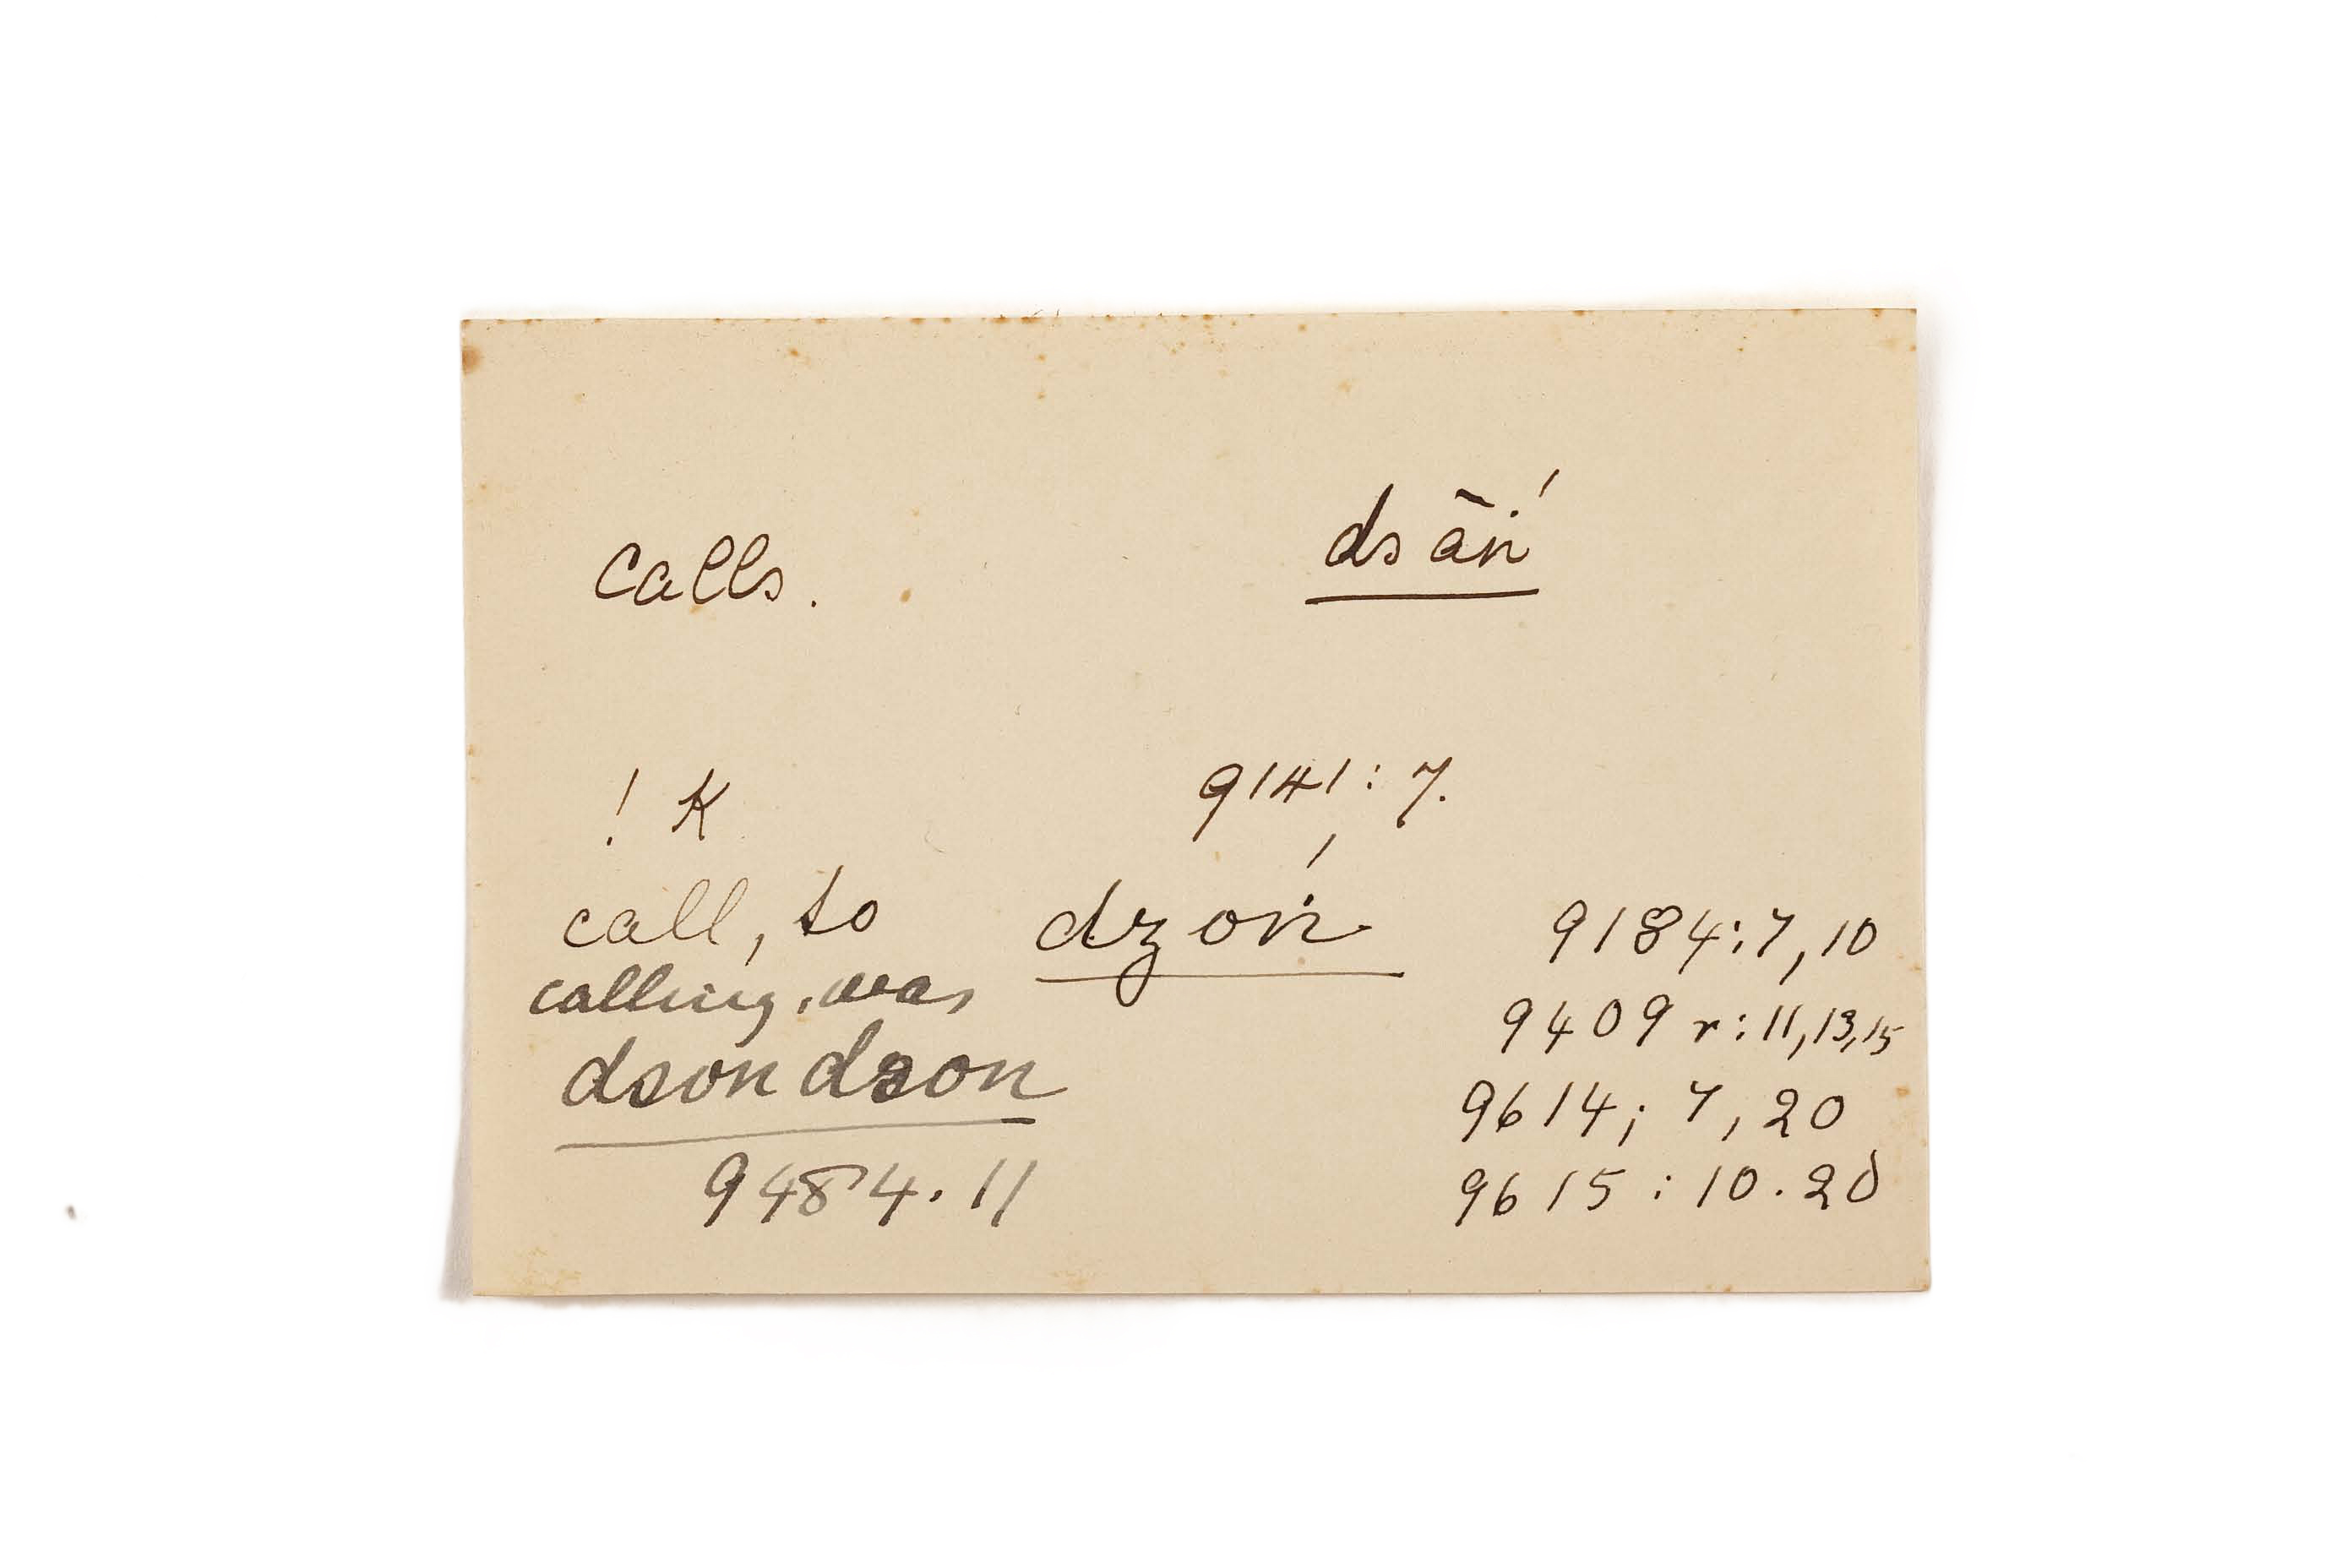 calls. dsāṅ́
! K 9141:7.
call, to dzoṅ́ 9184:7,10
calling, was 9409 r:11,13,15
dsoṅ dzon 9614; 7, 20
9484.11 9615:10.20